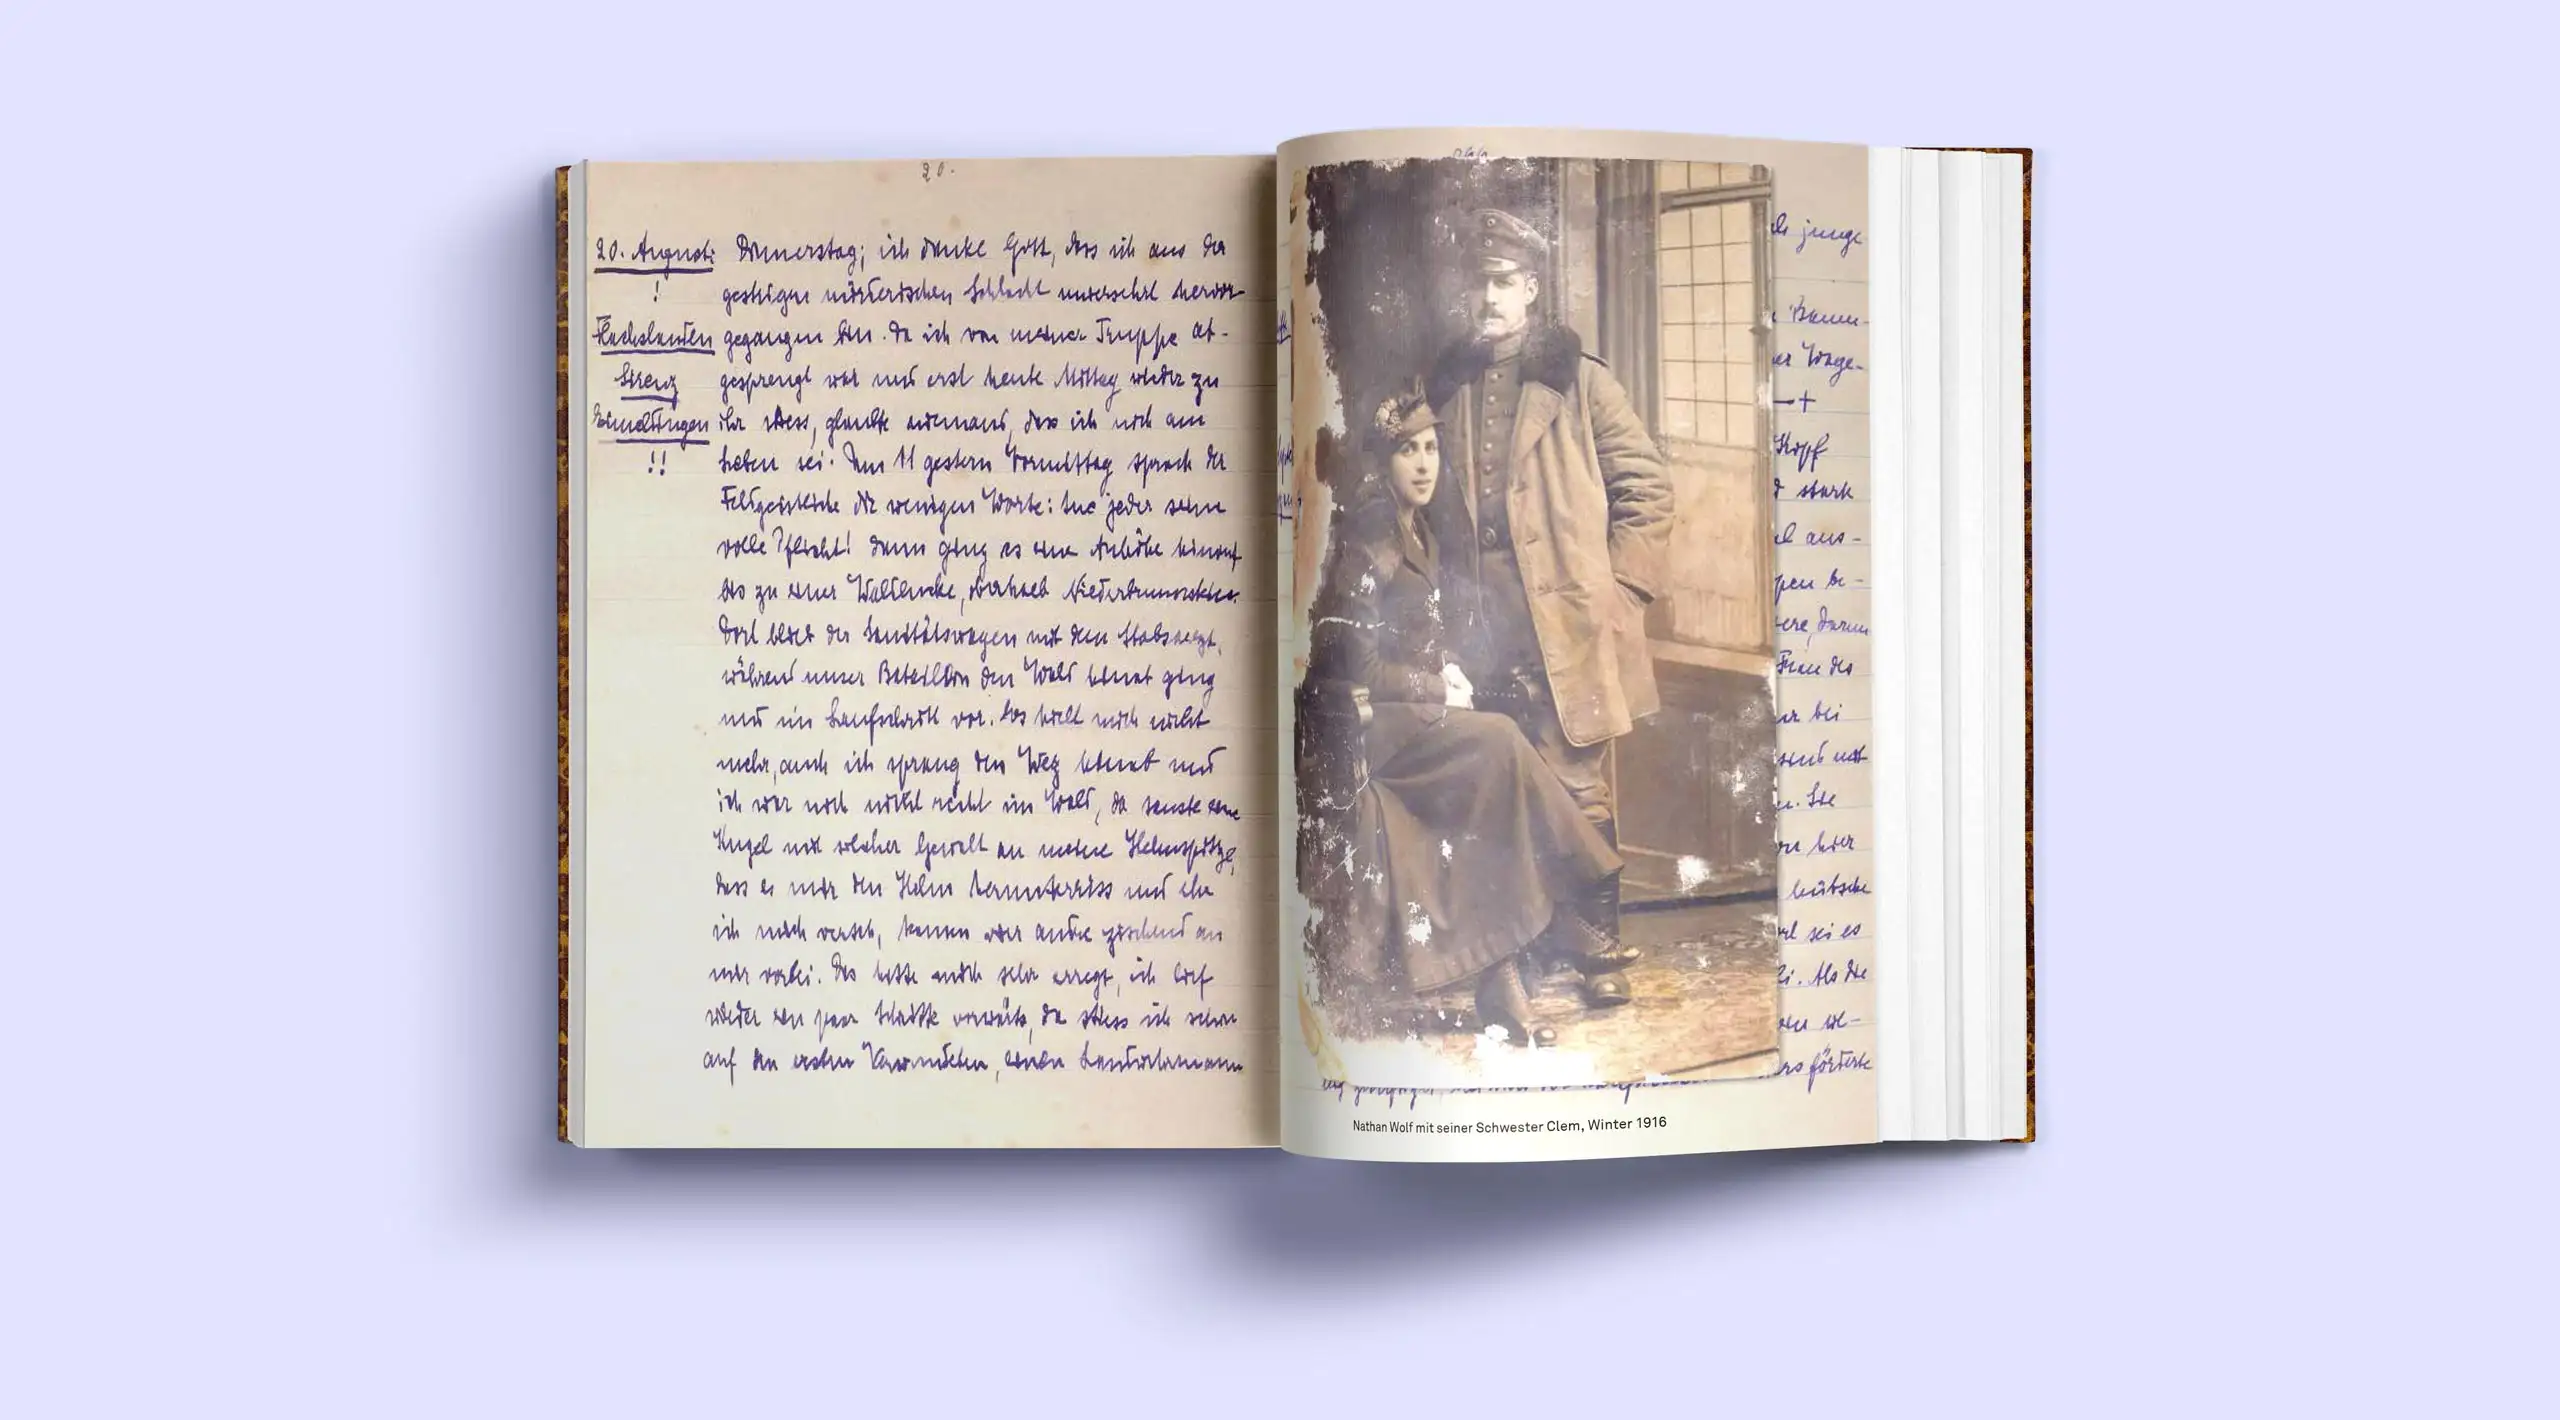 20.
20. August: Donnerstag; ich danke Gott, dass ich aus der
! gestrigen mörderischen Schlacht unversehrt hervor-
Flachslanden gegangen bin. Da ich von meiner Truppe ab-
Sierenz gesprengt war und erst heute Mittag wieder zu
ihr stiess, glaubte niemand, dass ich noch am
!! Leben sei. Um 11 gestern Vormittag sprach der
Feldgeistliche die wenigen Worte: tue jeder seine
volle Pflicht! Dann ging es eine Anhöhe hinauf
bis zu einer Waldecke, oberhalb
Dort blieb der Sanitätswagen mit dem Stabsarzt,
während unser Bataillon den Wald hinab ging
und im Laufschritt vor. Es hielt mich nicht
mehr, auch ich sprang den Weg hinab und
ich war noch nicht recht im Wald, da sauste eine
Kugel mit solcher Gewalt an meine Helmspitze,
dass es mir den Helm herunterriss und ehe
ich mich versah, kamen vier andre zischend an
mir vorbei. Das hatte mich sehr erregt, ich lief
wieder ein paar Schritte vorwärts, da stiess ich schon
auf den ersten Verwundeten, einen Landwehrmann
junge
Kopf
stark
aus-
be-
Frau des
bei
Sie
hier
hübsche
sei es
Als die
förderte
Nathan Wolf mit seiner Schwester Clem, Winter 1916